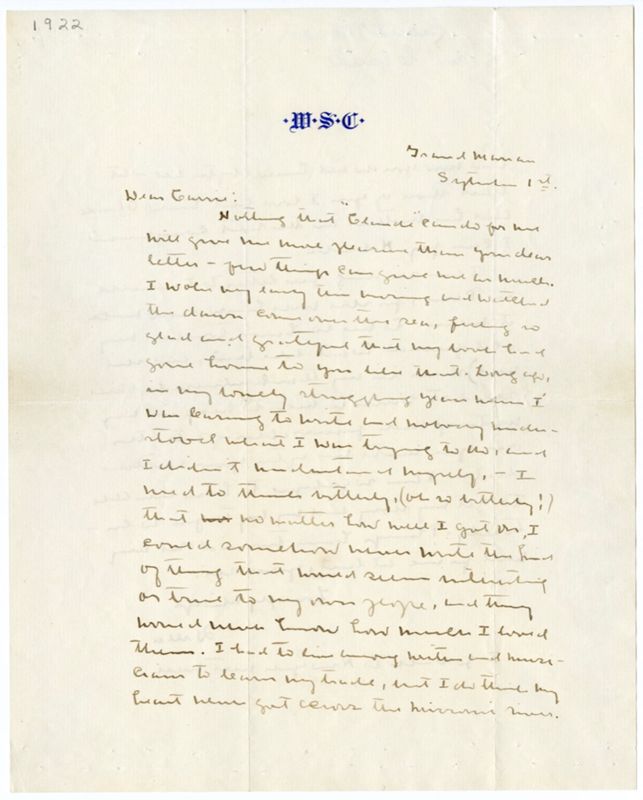 1922
·W·S·C·
Grand Manan
September 1st.
Dear Carrie:
Nothing that "Claude" can do for me
will give me more pleasure than your dear
letter – few things can give me as much.
I woke up early this morning and watched
the dawn come over the sea, feeling so
glad and grateful that my book had
gone home to you like that. Long ago,
in my lonely struggling years when I
was learning to write and nobody under-
stood what I was trying to do, and
I didn't understand myself, – I
used to think bitterly, (oh so bitterly!)
that no matter how well I got on, I
could somehow never write the kind
of thing that would seem interesting
or true to my own people, and they
would never know how much I loved
them. I had to live among writers and musi-
cians to learn my trade, but I do think my
heart never got across the Missouri river.